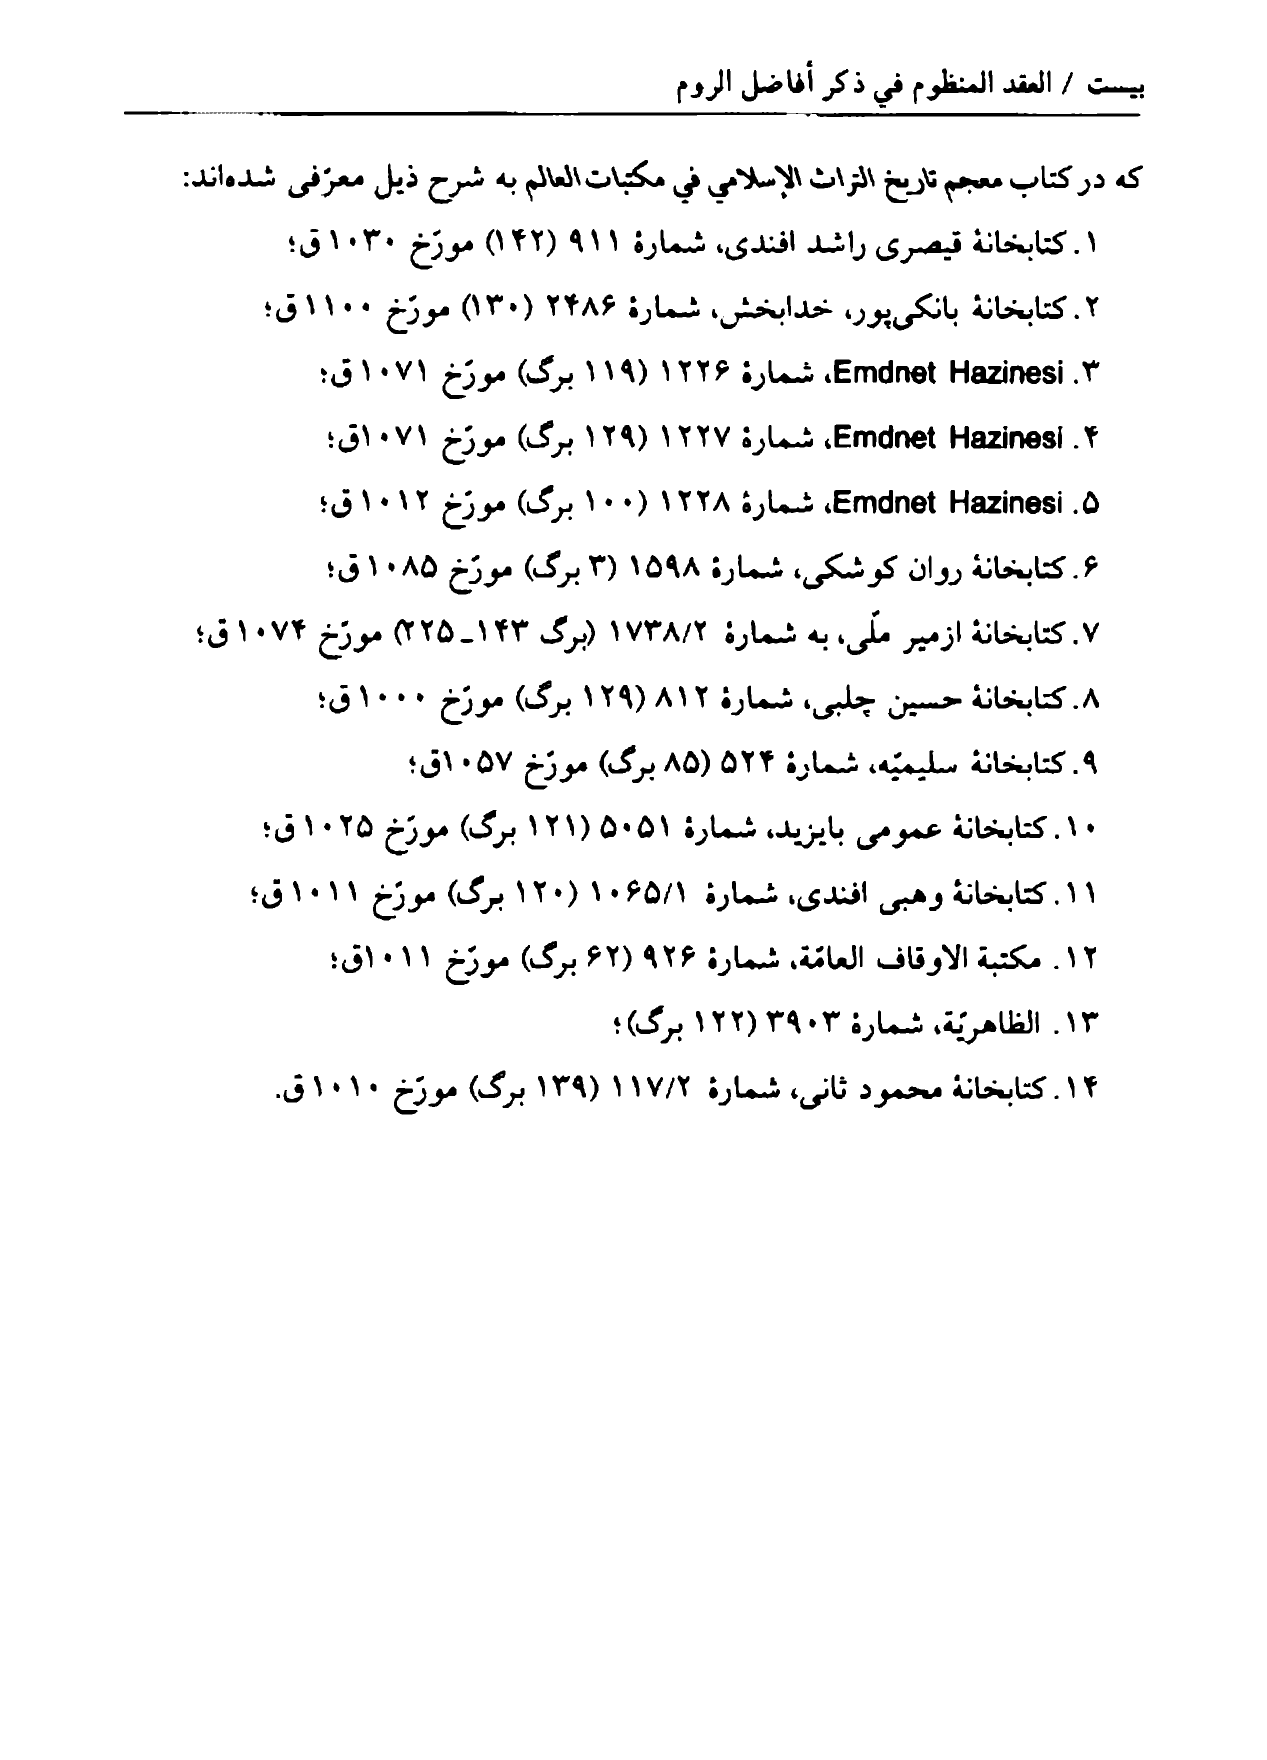 بیست / العقد المنظوم في ذكر أفاضل الروم
که در کتاب معجم تاریخ التراث الإسلامي في مکتبات العالم به شرح ذیل معرّفی شده‌اند:
۱. کتابخانهٔ قیصری راشد افندی، شمارهٔ ۹۱۱ (۱۴۲) مورّخ ۱۰۳۰ق؛
۲. کتابخانهٔ بانکی‌پور، خدابخش، شمارهٔ ۲۴۸۶ (۱۳۰) مورّخ ۱۱۰۰ق؛
۳. Emdnet Hazinesi، شمارهٔ ۱۲۲۶ (۱۱۹ برگ) مورّخ ۱۰۷۱ق؛
۴. Emdnet Hazinesi، شمارهٔ ۱۲۲۷ (۱۲۹ برگ) مورّخ ۱۰۷۱ق؛
۵. Emdnet Hazinesi، شمارهٔ ۱۲۲۸ (۱۰۰ برگ) مورّخ ۱۰۱۲ق؛
۶. کتابخانهٔ روان کوشکی، شمارهٔ ۱۵۹۸ (۳ برگ) مورّخ ۱۰۸۵ق؛
۷. کتابخانهٔ ازمیر ملّی، به شمارهٔ ۱۷۳۸/۲ (برگ ۱۴۳ـ۲۲۵) مورّخ ۱۰۷۴ق؛
۸. کتابخانهٔ حسین چلبی، شمارهٔ ۸۱۲ (۱۲۹ برگ) مورّخ ۱۰۰۰ق؛
۹. کتابخانهٔ سلیمیّه، شمارهٔ ۵۲۴ (۸۵ برگ) مورّخ ۱۰۵۷ق؛
۱۰. کتابخانهٔ عمومی بایزید، شمارهٔ ۵۰۵۱ (۱۲۱ برگ) مورّخ ۱۰۲۵ق؛
۱۱. کتابخانهٔ وهبی افندی، شمارهٔ ۱۰۶۵/۱ (۱۲۰ برگ) مورّخ ۱۰۱۱ق؛
۱۲. مکتبة الاوقاف العامّة، شمارهٔ ۹۲۶ (۶۲ برگ) مورّخ ۱۰۱۱ق؛
۱۳. الظاهریّة، شمارهٔ ۳۹۰۳ (۱۲۲ برگ)؛
۱۴. کتابخانهٔ محمود ثانی، شمارهٔ ۱۱۷/۲ (۱۳۹ برگ) مورّخ ۱۰۱۰ق.